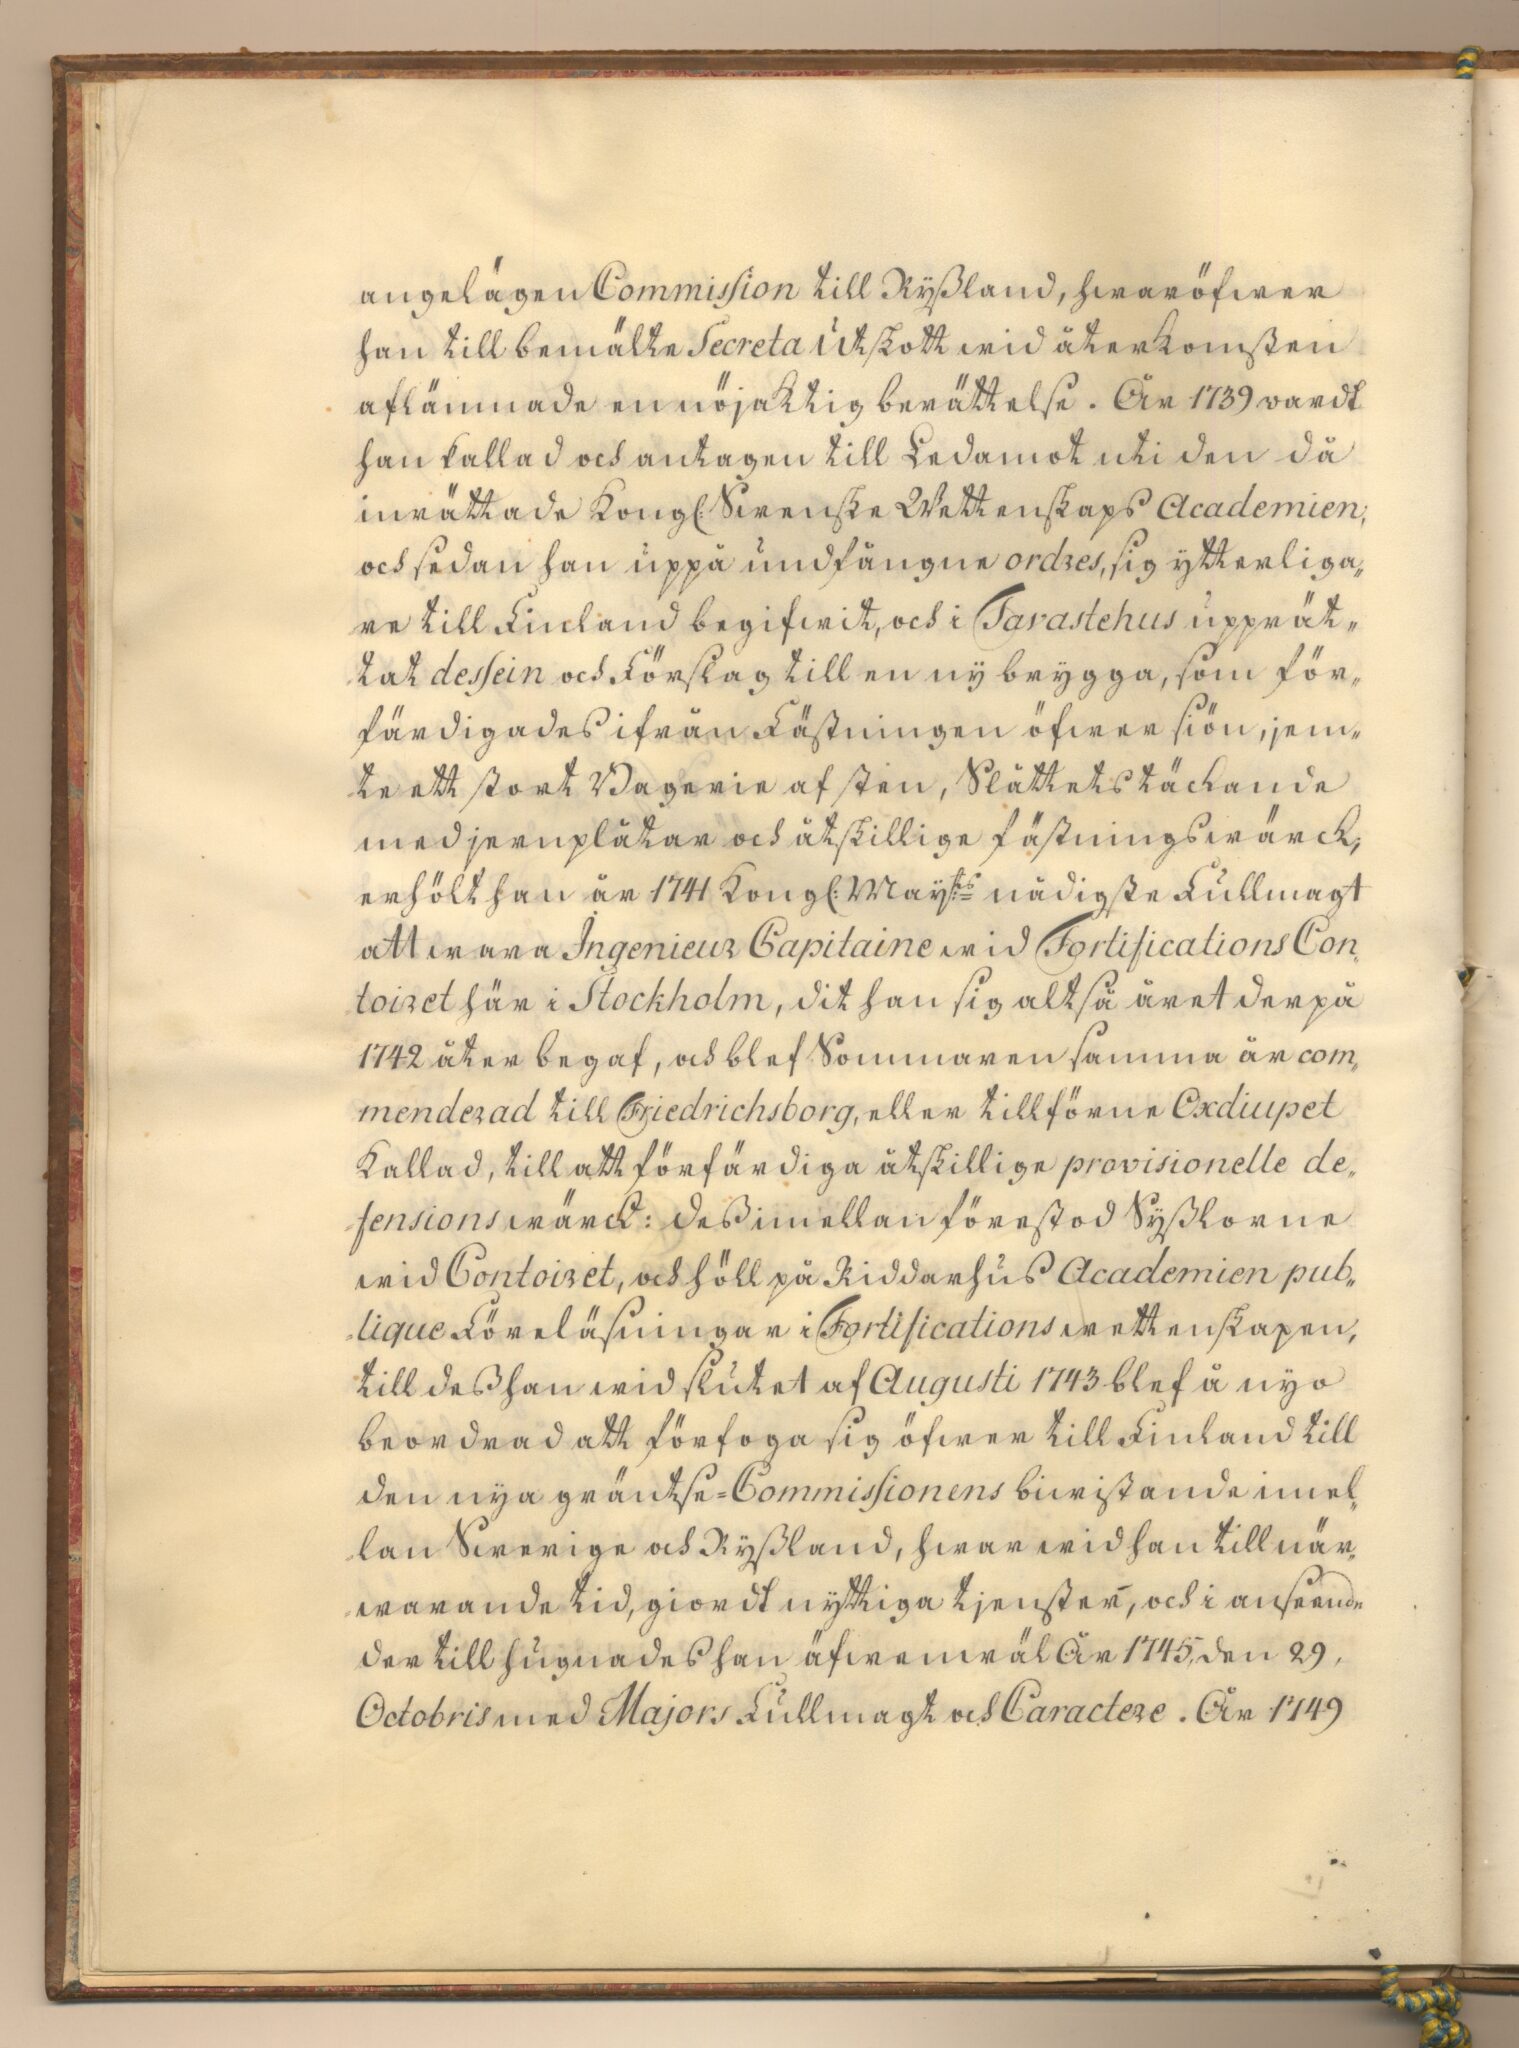 angelägen Commission till Ryßland, hwaröfwer
han till bemälte Secreta Utskott wid återkomsten
aflämnade en nöjaktig berättelse. År 1739 wardt
han kallad och antagen till Ledamot uti den då
inrättade Kongl: Swenske Wettenskaps Academien,
och sedan han uppå undfångne ordres, sig ytterliga„
re till Finland begifwit, och i Tavastehus upprät„
tat dessein och Förslag till en ny brygga, som för„
färdigades ifrån Fästningen öfwer siön, jem„
te ett stort Bagerie af sten, Slåttets täckande
med jernplåtar och åtskillige fästningswärck,
erhölt han år 1741 Kongl: Maÿ:ts nådigste Fullmagt
att wara Ingenieur Capitaine wid Fortifications Con„
toiret här i Stockholm, dit han sig altså året derpå
1742 åter begaf, och blef Sommaren samma år com„
menderad till Friedrichsborg, eller tillförne Oxdiupet
Kallad, till att förfärdiga åtskillige provisionelle de„
fensions wärck: deßimellan förestod Syßlorne
wid Contoiret, och höll på Riddarhus Academien pub„
lique Föreläsningar i Fortifications wettenskapen,
till deß han wid slutet af Augusti 1743 blef å nyo
beordrad att förfoga sig öfwer till Finland till
den nya gräntse=Commissionens biwistande imel„
lan Swerige och Ryßland, hwarwid han till när„
warande tid, giordt nyttiga tjenster, och i anseende
der till hugnades han äfwenwäl År 1745, den 29,
Octobris med Majors Fullmagt och Caractere. År 1749